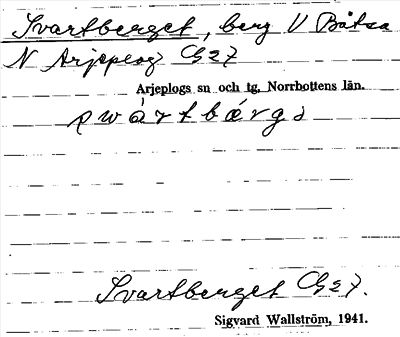 Svartberget, berg V Båtsa
N Arjeplog G27
Arjeplogs sn och tg, Norrbottens län.
Svartberget G27.
Sigvard Wallström, 1941.